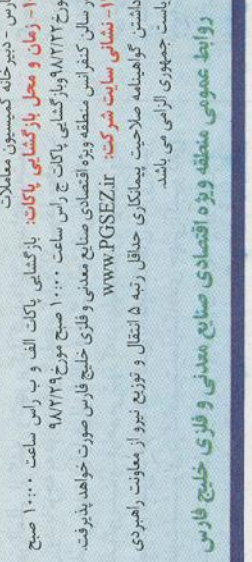 فارس - دبیرخانه کمیسیون معاملات
۱- زمان و محل بازگشایی پاکات: بازگشایی پاکات الف و ب راس ساعت ۱۰:۰۰ صبح
مورخ ۹۸/۲/۲۲ و بازگشایی پاکات ج راس ساعت ۱۰:۰۰ صبح مورخ ۹۸/۲/۲۹
در سالن کنفرانس منطقه ویژه اقتصادی صنایع معدنی و فلزی خلیج فارس صورت خواهد پذیرفت.
۱- نشانی سایت شرکت: www.PGSEZ.ir
داشتن گواهینامه صلاحیت پیمانکاری حداقل رتبه ۵ انتقال و توزیع نیرو از معاونت راهبردی
ریاست جمهوری الزامی می باشد.
روابط عمومی منطقه ویژه اقتصادی صنایع معدنی و فلزی خلیج فارس